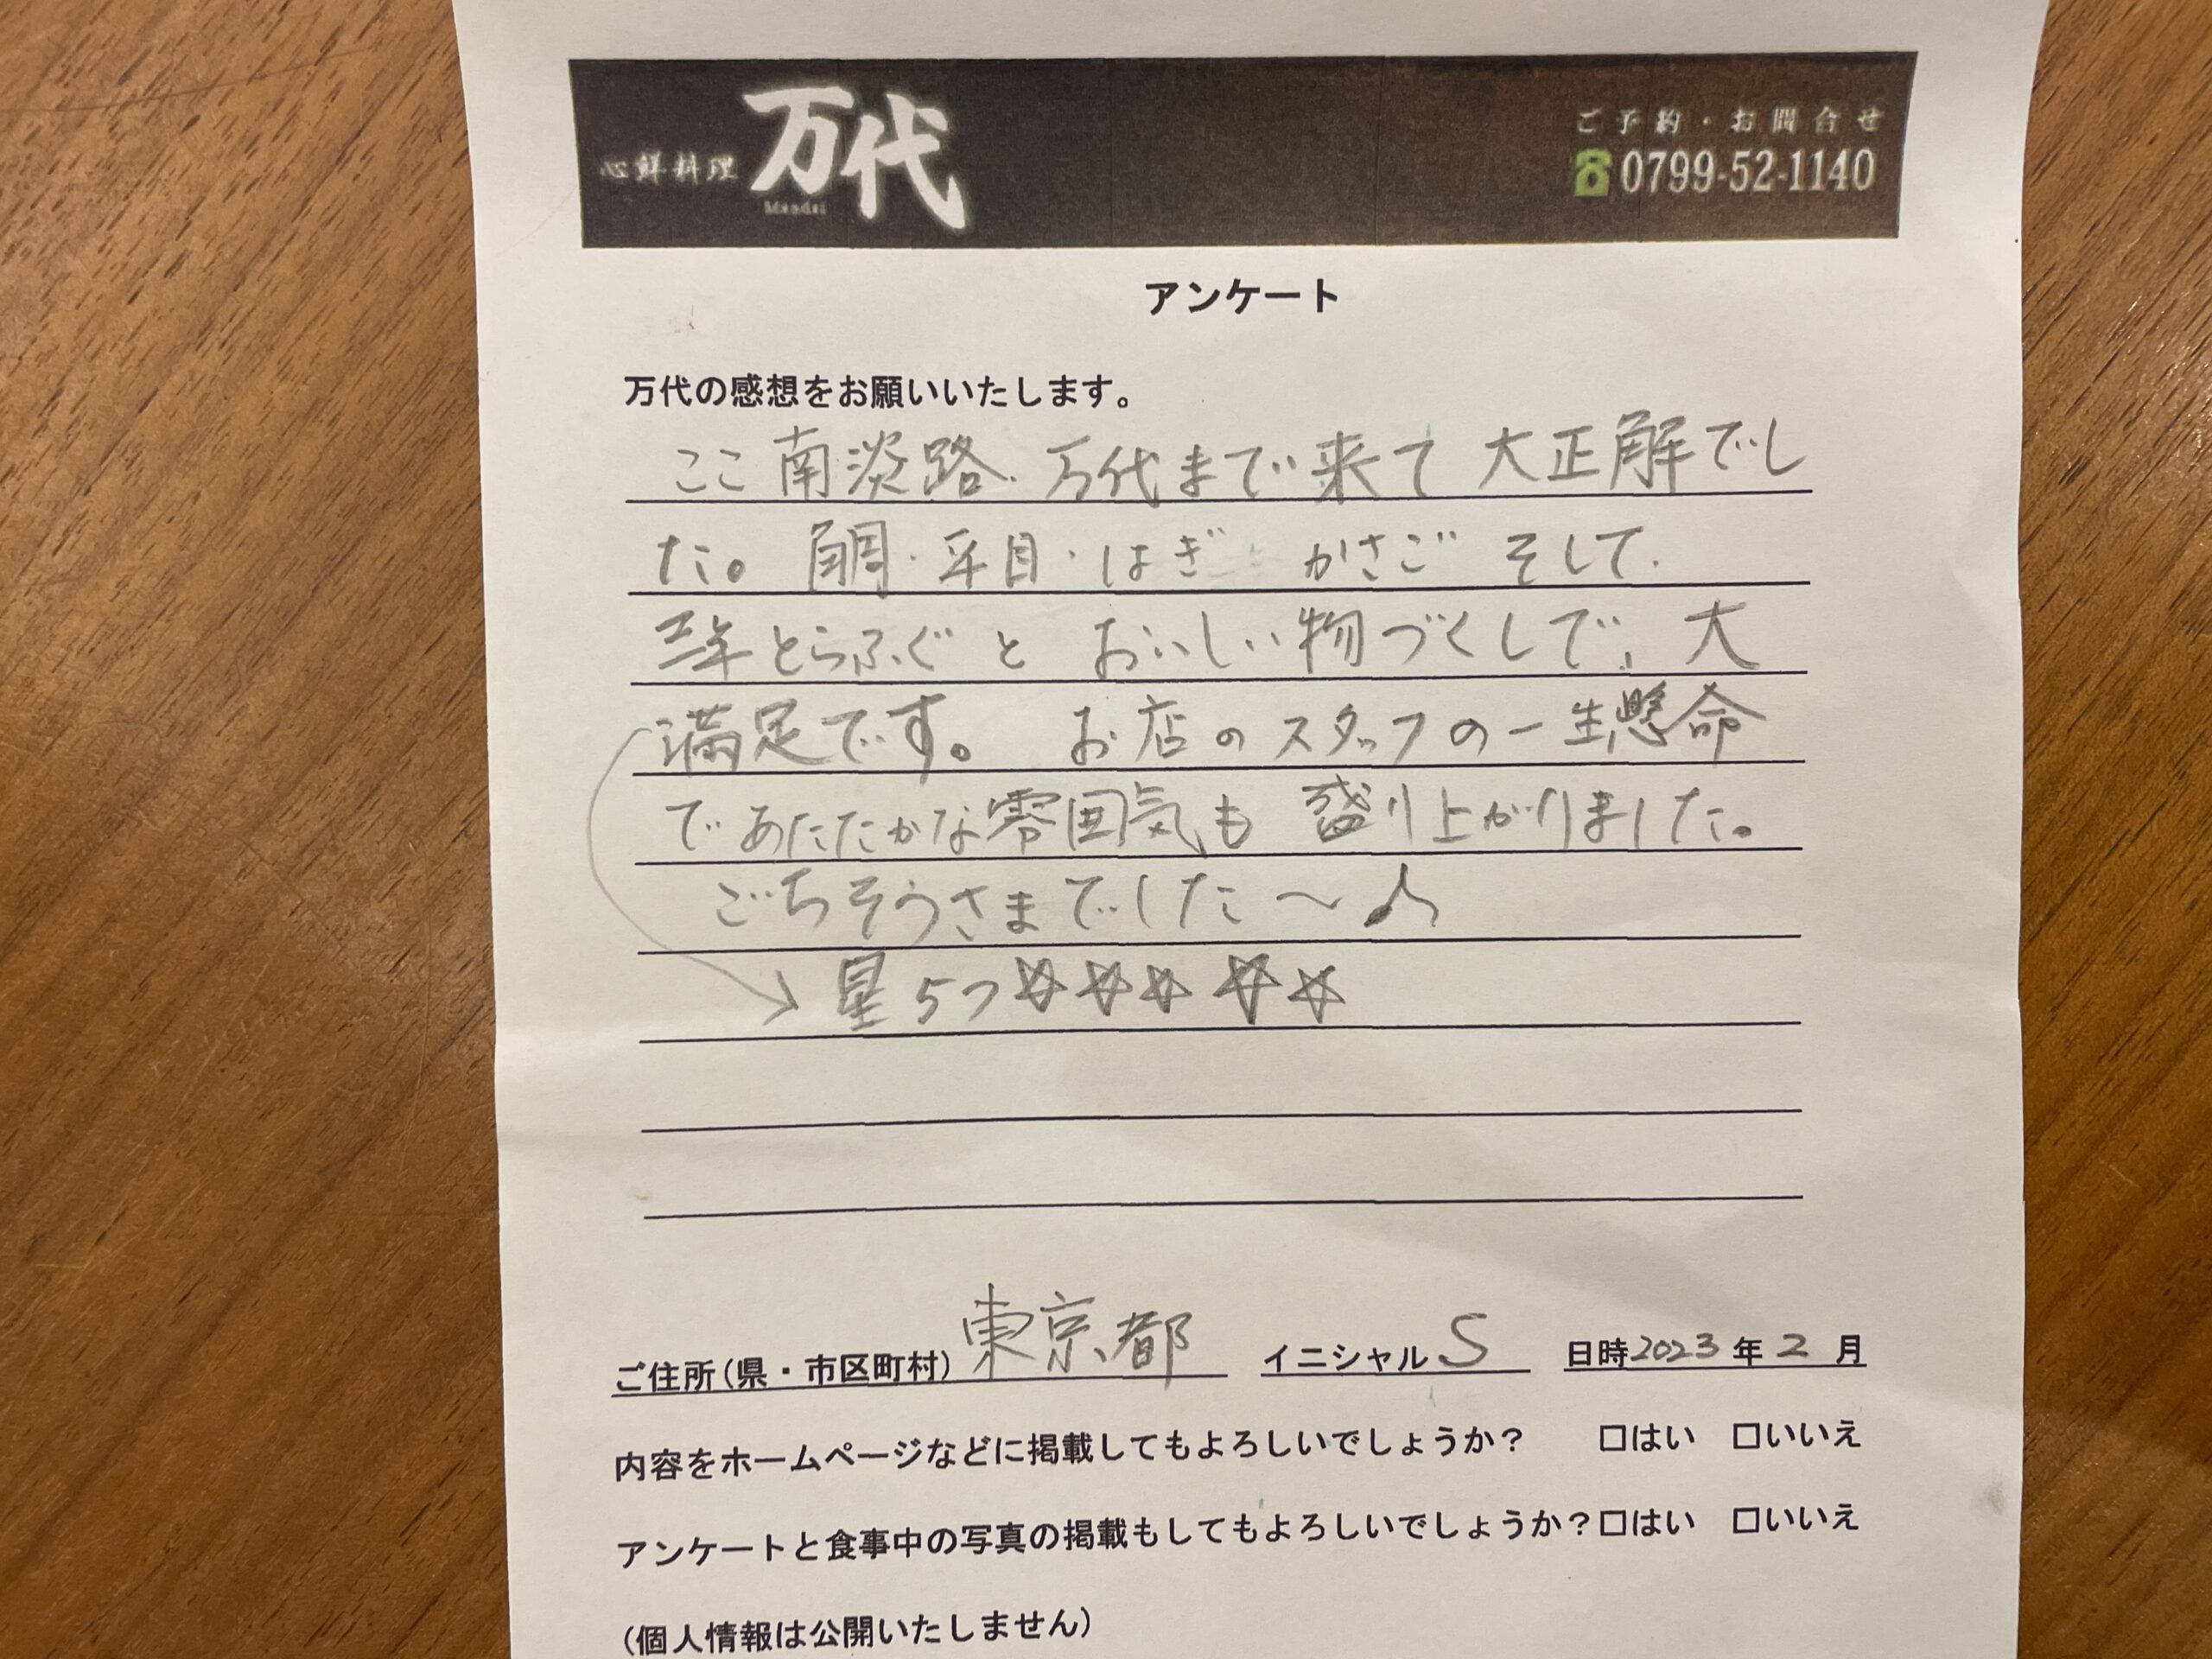 心鮮料理 万代
Mandai
ご予約・お問合せ
0799-52-1140
アンケート
万代の感想をお願いいたします。
ここ南淡路.万代まで来て 大正解でし
た。 鯛・平目・はぎ かさご そして.
三年とらふぐと おいしい物づくしで、大
満足です。 お店のスタッフの一生懸命
であたたかな雰囲気も 盛り上がりました。
ごちそうさまでした〜♪
→ 星5つ☆☆☆☆☆
ご住所(県・市区町村) 東京都 イニシャル S 日時2023年2月
内容をホームページなどに掲載してもよろしいでしょうか? □はい □いいえ
アンケートと食事中の写真の掲載もしてもよろしいでしょうか?□はい □いいえ
(個人情報は公開いたしません)